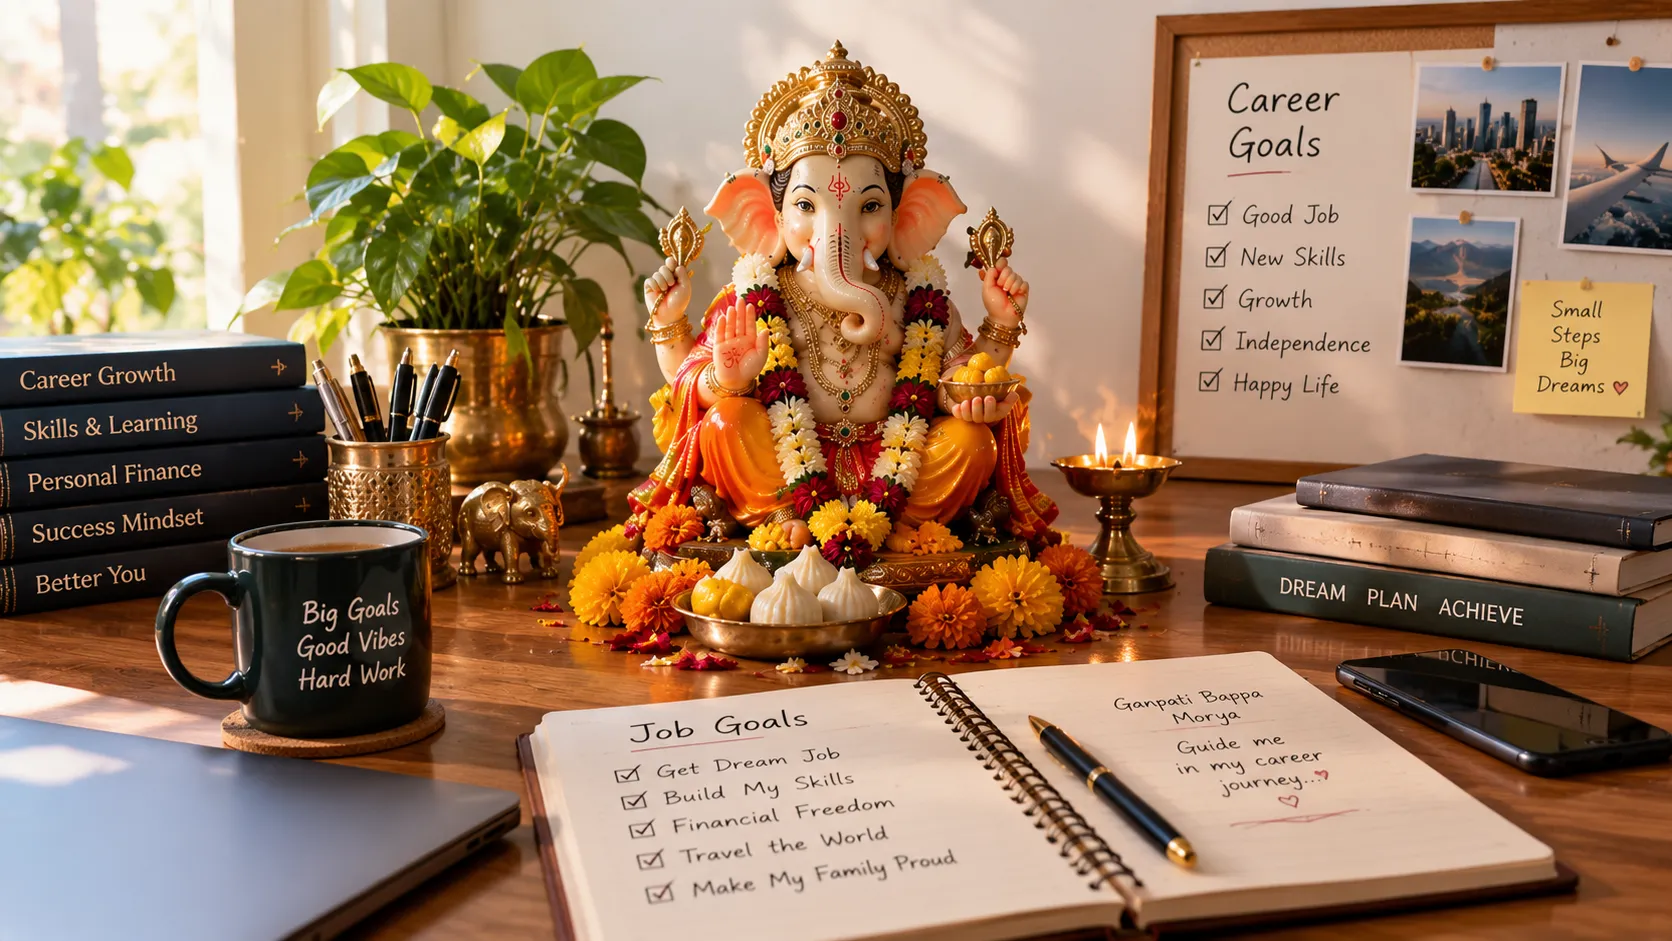 Career Growth
Skills & Learning
Personal Finance
Success Mindset
Better You
Big Goals
Good Vibes
Hard Work
Career
Goals
Good Job
New Skills
Growth
Independence
Happy Life
Small
Steps
Big
Dreams
DREAM PLAN ACHIEVE
Job Goals
Get Dream Job
Build My Skills
Financial Freedom
Travel the World
Make My Family Proud
Ganpati Bappa
Morya
Guide me
in my career
journey...